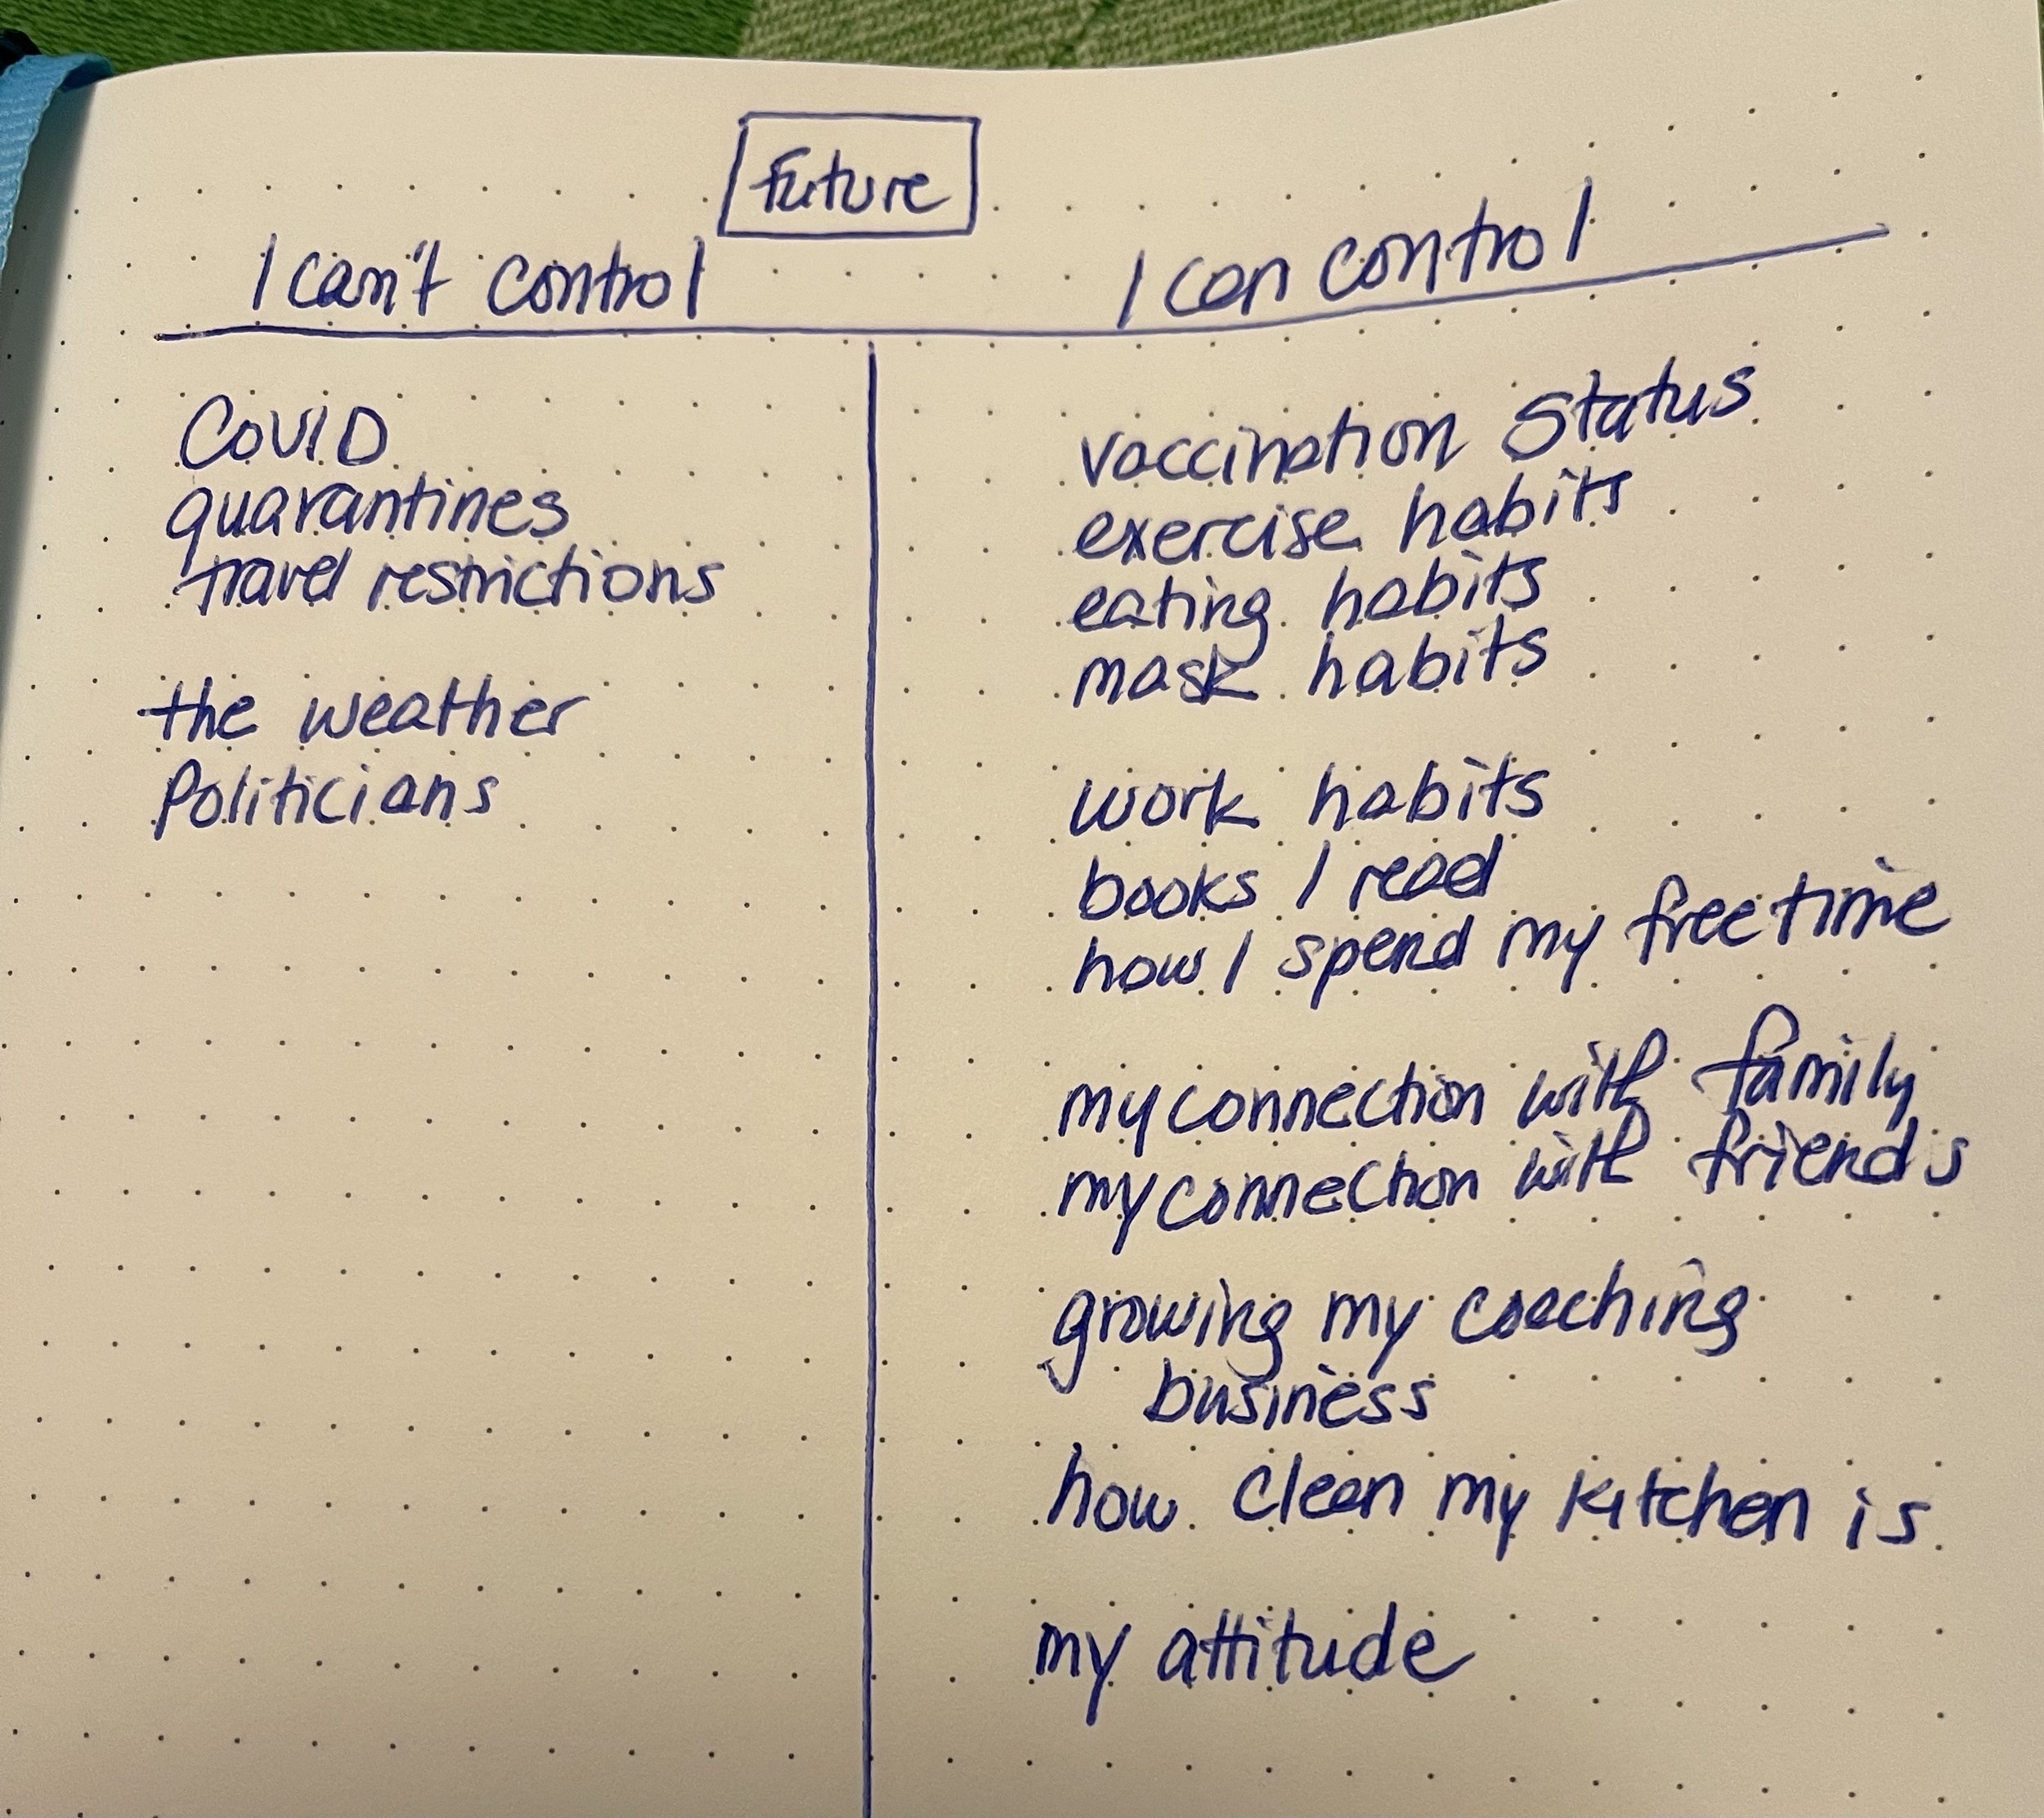 Future
I can't control
I can control
COVID
quarantines
travel restrictions
the weather
Politicians
vaccination Status
exercise habits
eating habits
mask habits
work habits
books I read
how I spend my free time
my connection with family
my connection with friends
growing my coaching
business
how clean my kitchen is
my attitude